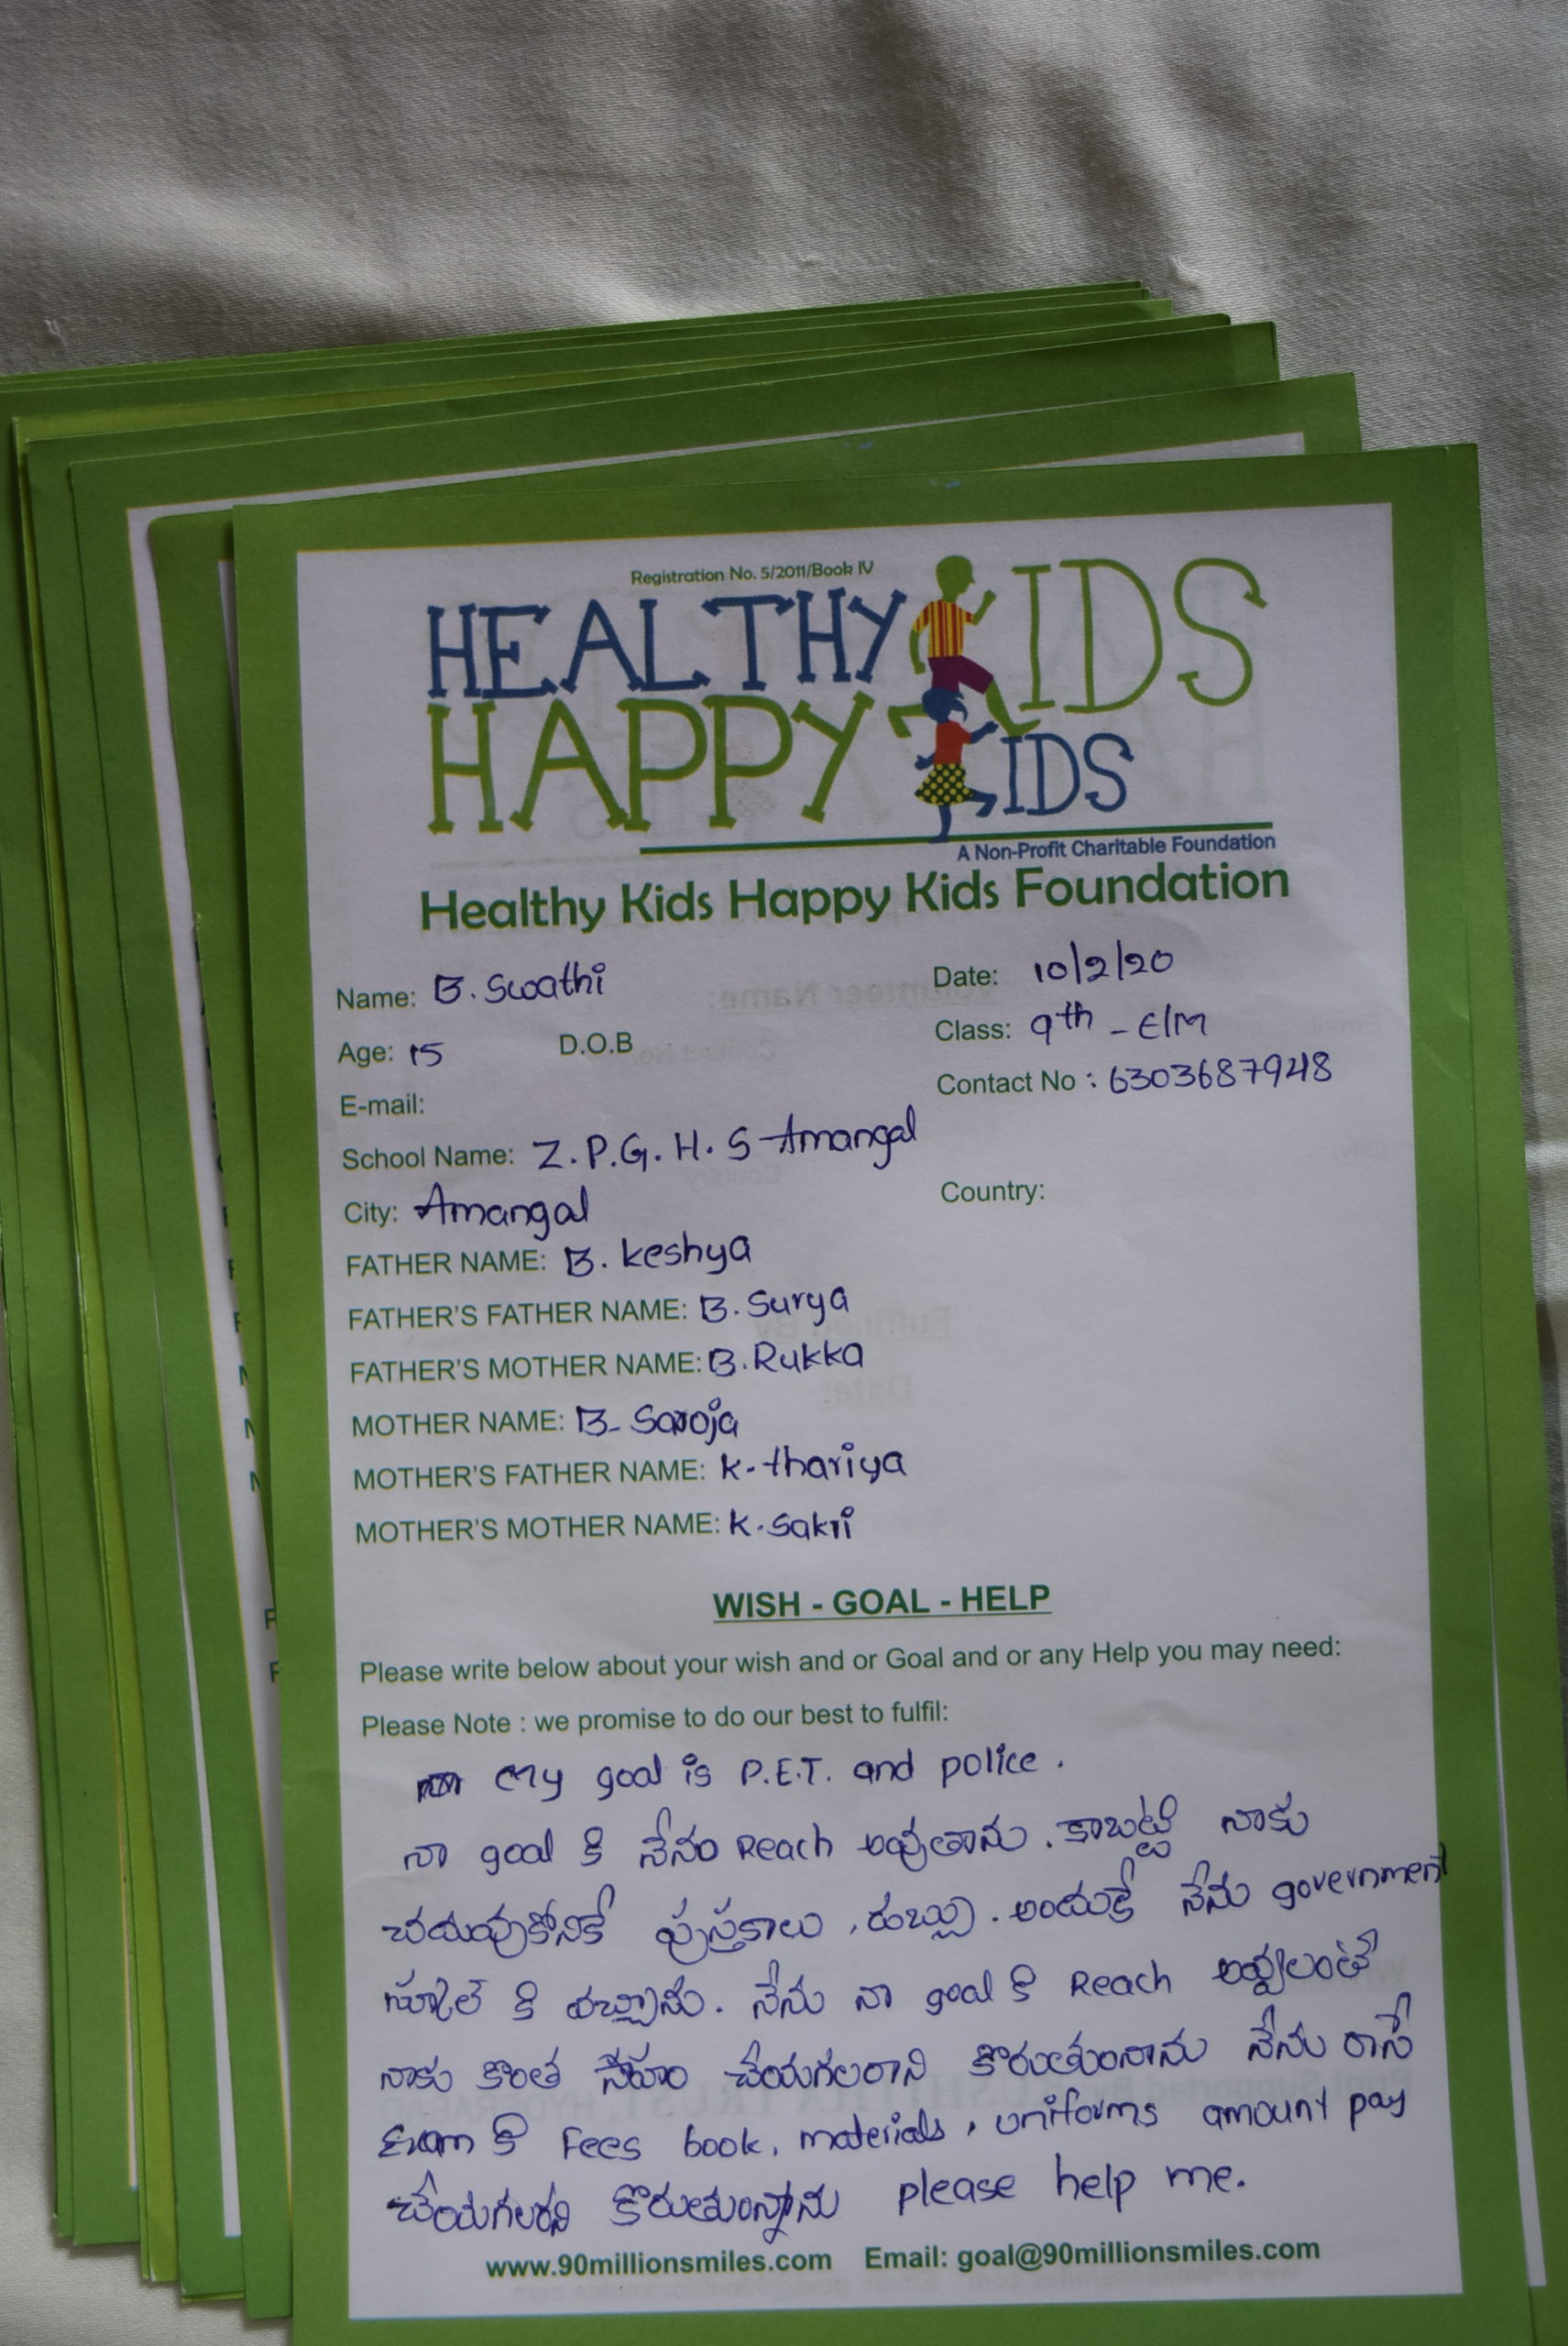 Registration No. 5/2011/Book IV
HEALTHY KIDS
HAPPY KIDS
A Non-Profit Charitable Foundation
Healthy Kids Happy Kids Foundation
Name: B. Swathi
Date: 10/2/20
Age: 15 D.O.B
Class: 9th - E/M
E-mail:
Contact No : 6303687948
School Name: Z.P.G.H.S Amangal
City: Amangal
Country:
FATHER NAME: B. keshya
FATHER'S FATHER NAME: B. Surya
FATHER'S MOTHER NAME: B. Rukka
MOTHER NAME: B- Saroja
MOTHER'S FATHER NAME: k. thariya
MOTHER'S MOTHER NAME: k. Sakri
WISH - GOAL - HELP
Please write below about your wish and or Goal and or any Help you may need:
Please Note : we promise to do our best to fulfil:
My goal is P.E.T. and police.
నా goal కి నేనం Reach అవుతాను. కాబట్టి నాకు
చదువుకోనికే పుస్తకాలు, డబ్బు. అందుకే నేను government
స్కూల్ కి వచ్చాను. నేను నా goal కి Reach అవ్వలంతే
నాకు కొంత చేయగలరాని కొరుతుంనాను నేను రాసే
Exam కి Fees book, materials, uniforms amount pay
చేయగలరని కొరుతున్నాను please help me.
www.90millionsmiles.com Email: goal@90millionsmiles.com